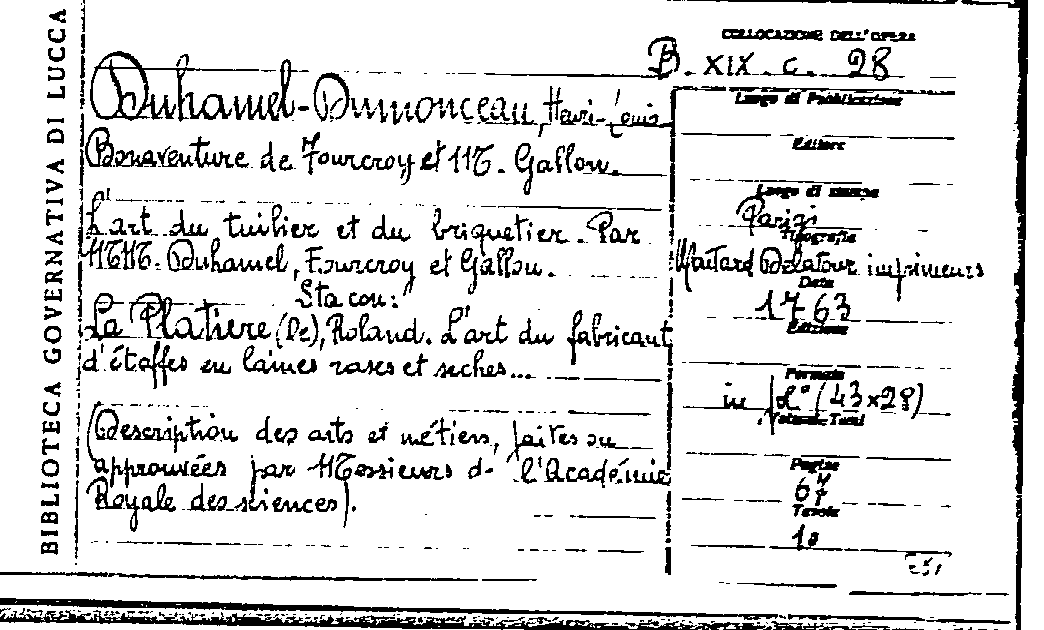 BIBLIOTECA GOVERNATIVA DI LUCCA
COLLOCAZIONE DELL'OPERA
B. XIX. c. 28
Duhamel-Dumonceau, Henri-Louis
Bonaventure de Fourcroy et M. Gallon.
L'art du tuilier et du briquetier. Par
MM. Duhamel, Fourcroy et Gallon.
Sta con:
La Platiere (De), Roland. L'art du fabricant
d'étoffes en laines rases et seches...
(Description des arts et métiers, faites ou
approuvées par Messieurs de l'Académie
Royale des sciences).
Luogo di Pubblicazione
Editore
Luogo di stampa
Parigi
Tipografia
Delatour imprimeurs
Data
1763
Edizione
Formato
in fol° (43x29)
Volumi-Tomi
Pagine
67
Tavole
10